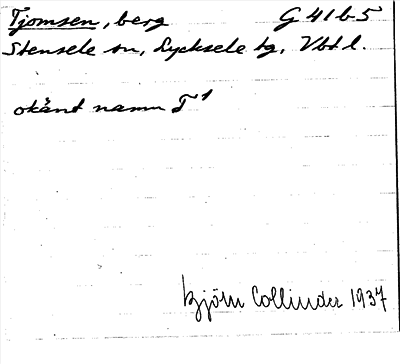 Tjomsen, berg G 41 b 5
Stensele sn, Lycksele tg, Vbtl.
okänt namn T¹
Björn Collinder 1937